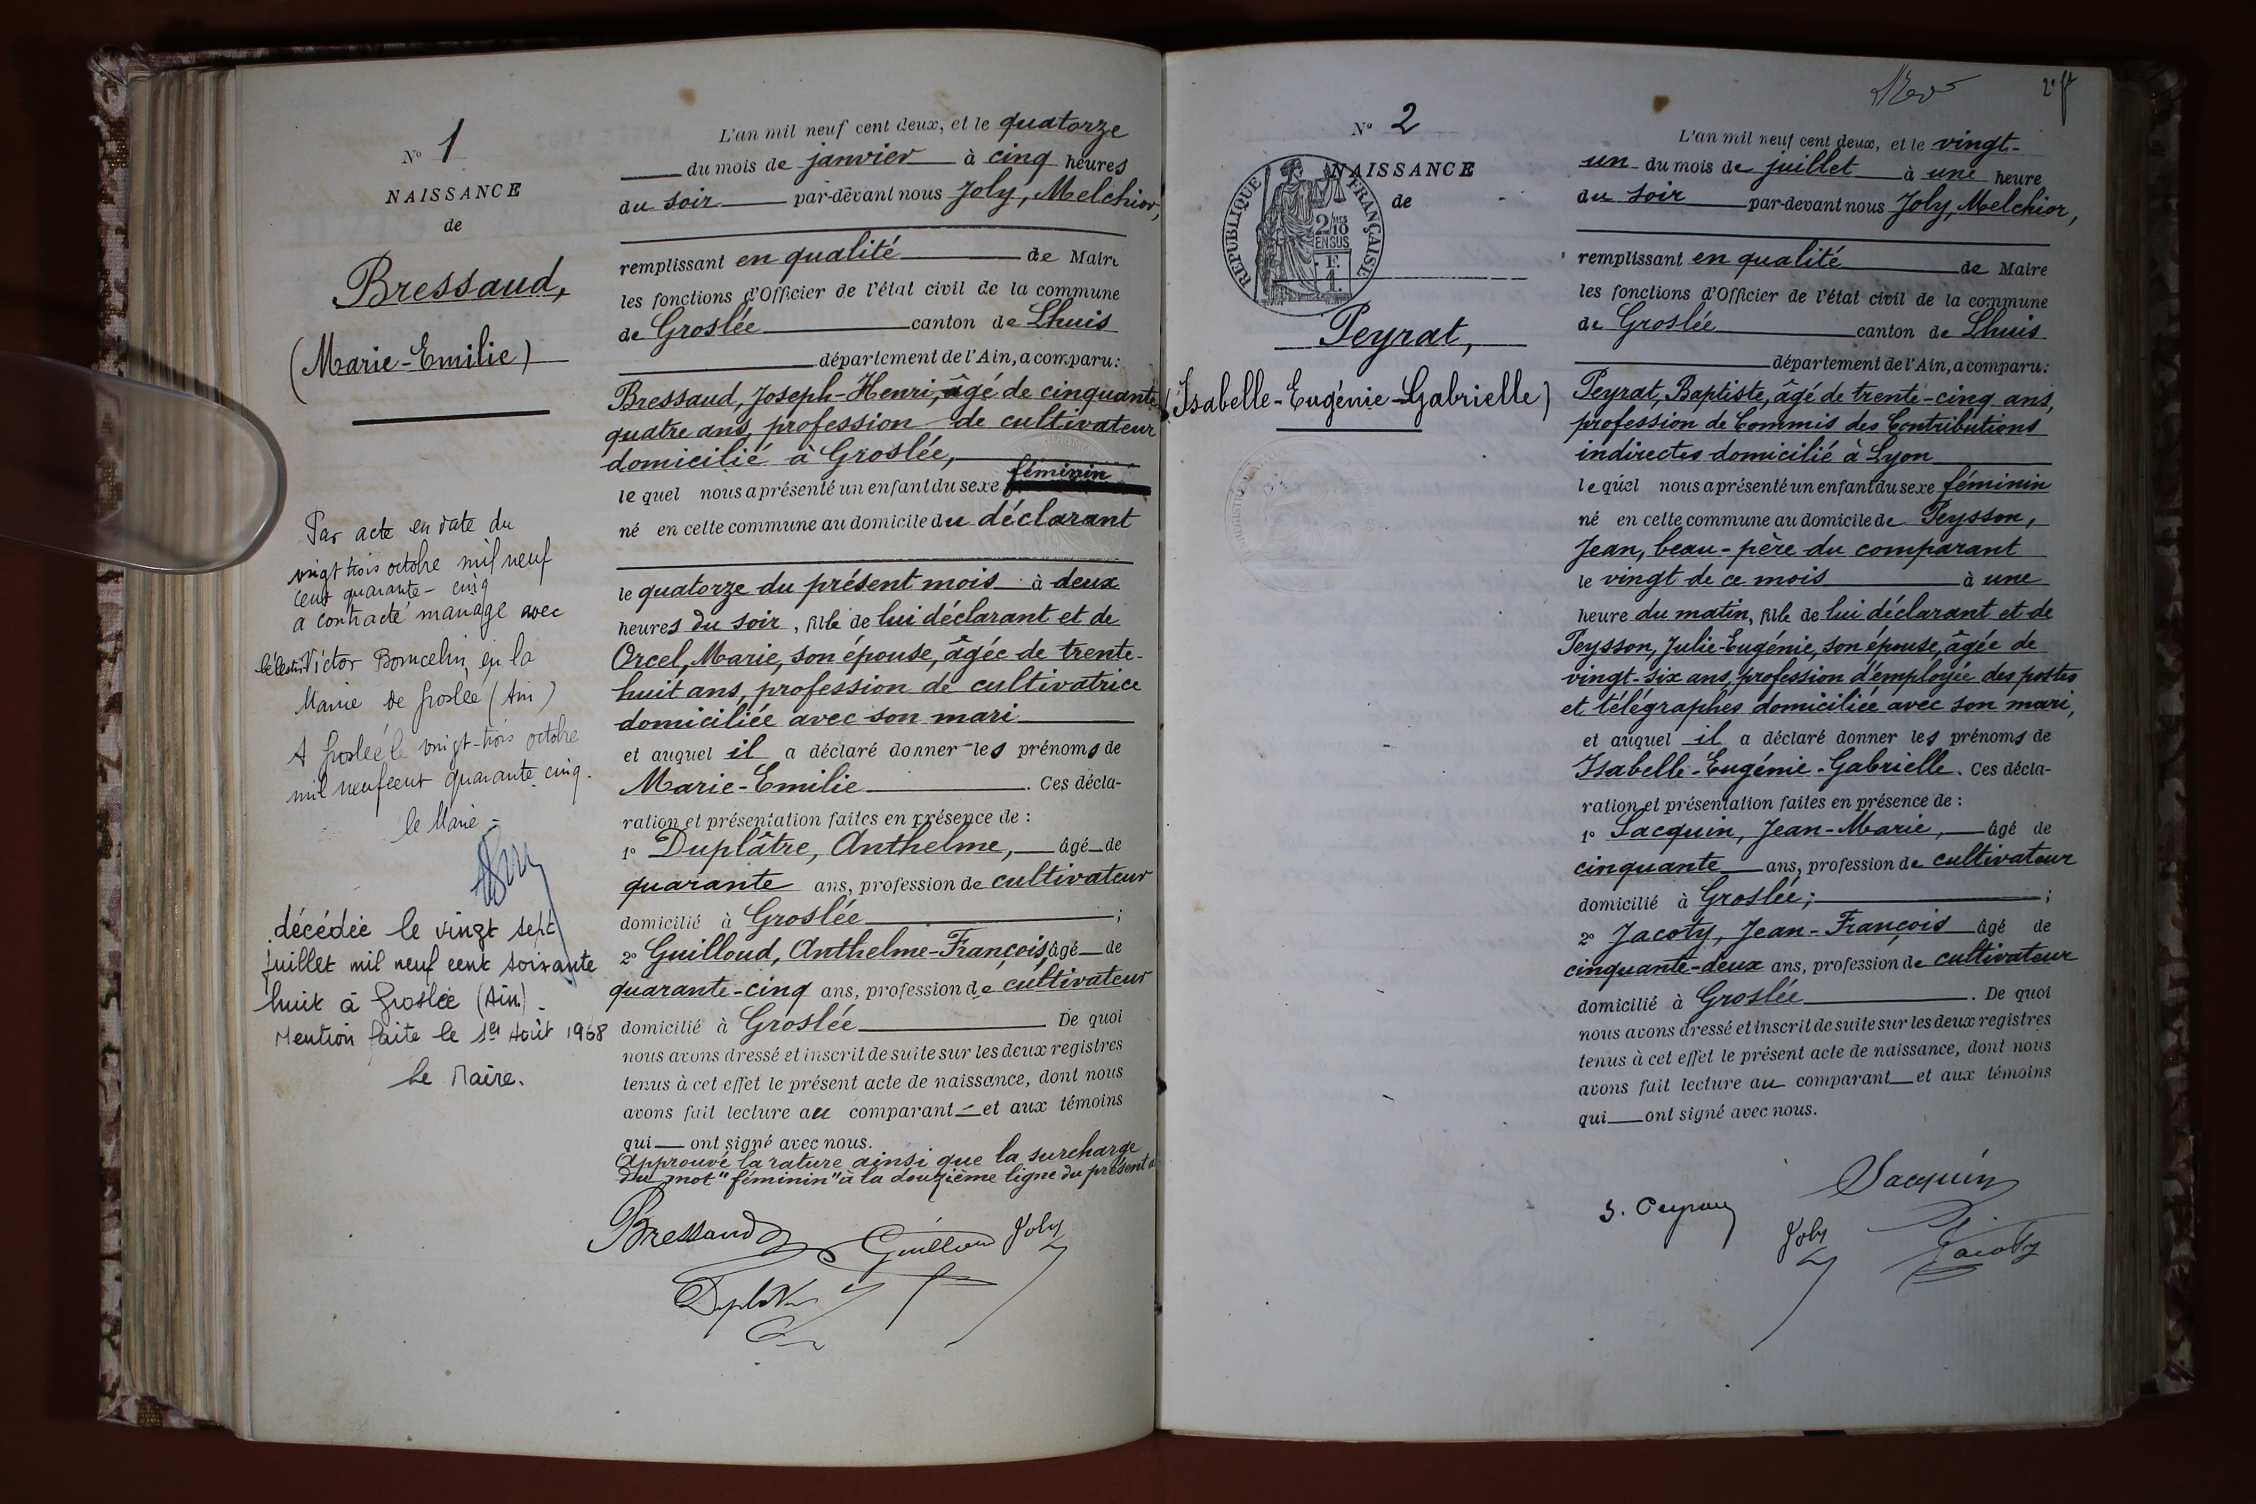 N° 1
NAISSANCE
de
Bressaud,
(Marie-Emilie)
Par acte en date du
vingt trois octobre mil neuf
cent quarante-cinq
a contracté mariage avec
Célestin Victor Boucelin, en la
Mairie de Groslée (Ain)
A Groslée le vingt-trois octobre
mil neuf cent quarante cinq.
le Maire
décédée le vingt sept
juillet mil neuf cent soixante
huit à Groslée (Ain).
Mention faite le 1er Août 1968
Le Maire.
L'an mil neuf cent deux, et le quatorze
du mois de janvier à cinq heures
du soir par-devant nous Joly, Melchior,
remplissant en qualité de Maire
les fonctions d'Officier de l'état civil de la commune
de Groslée canton de Lhuis
département de l'Ain, a comparu:
Bressaud, Joseph-Henri, âgé de cinquante
quatre ans, profession de cultivateur
domicilié à Groslée,
lequel nous a présenté un enfant du sexe féminin
né en cette commune au domicile du déclarant
le quatorze du présent mois à deux
heures du soir, fille de lui déclarant et de
Orcel, Marie, son épouse, âgée de trente-
huit ans, profession de cultivatrice
domiciliée avec son mari
et auquel il a déclaré donner les prénoms de
Marie-Emilie. Ces décla-
ration et présentation faites en présence de :
1° Duplâtre, Anthelme, âgé de
quarante ans, profession de cultivateur
domicilié à Groslée ;
2° Guilloud, Anthelme-François, âgé de
quarante-cinq ans, profession de cultivateur
domicilié à Groslée. De quoi
nous avons dressé et inscrit de suite sur les deux registres
tenus à cet effet le présent acte de naissance, dont nous
avons fait lecture au comparant et aux témoins
qui ont signé avec nous.
Approuvé la rature ainsi que la surcharge
du mot "féminin" à la douzième ligne du présent a
Bressaud Guilloud Joly
Duplâtre
2e ft
N° 2
NAISSANCE
de
REPUBLIQUE FRANÇAISE
2/10
EN SUS
F.
1.
Peyrat,
(Isabelle-Eugénie-Gabrielle)
L'an mil neuf cent deux, et le vingt-
un du mois de juillet à une heure
du soir par-devant nous Joly, Melchior,
remplissant en qualité de Maire
les fonctions d'Officier de l'état civil de la commune
de Groslée canton de Lhuis
département de l'Ain, a comparu:
Peyrat, Baptiste, âgé de trente-cinq ans,
profession de Commis des Contributions
indirectes domicilié à Lyon
lequel nous a présenté un enfant du sexe féminin
né en cette commune au domicile de Peysson,
Jean, beau-père du comparant
le vingt de ce mois à une
heure du matin, fille de lui déclarant et de
Peysson, Julie-Eugénie, son épouse, âgée de
vingt-six ans, profession d'employée des postes
et télégraphes domiciliée avec son mari,
et auquel il a déclaré donner les prénoms de
Isabelle-Eugénie-Gabrielle. Ces décla-
ration et présentation faites en présence de :
1° Sacquin, Jean-Marie, âgé de
cinquante ans, profession de cultivateur
domicilié à Groslée; ;
2° Jacoty, Jean-François âgé de
cinquante-deux ans, profession de cultivateur
domicilié à Groslée. De quoi
nous avons dressé et inscrit de suite sur les deux registres
tenus à cet effet le présent acte de naissance, dont nous
avons fait lecture au comparant et aux témoins
qui ont signé avec nous.
Sacquin
Joly Jacoty